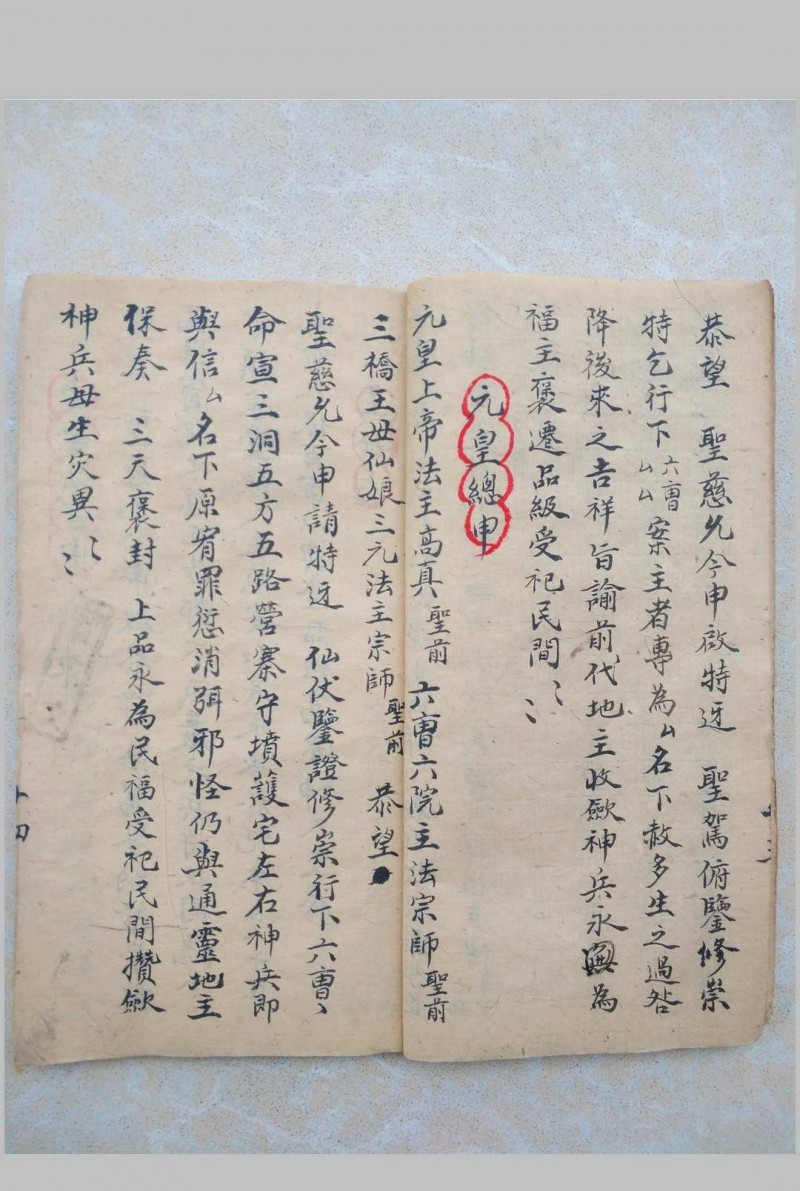 恭望　聖慈允今申啟特迓　聖駕俯鑒修崇
特乞行下六曹厶厶案主者專為厶名下赦多生之過咎
降後來之吉祥旨諭前代地主收歛神兵永為
福主褒遷品級受祀民間〻〻
元皇總申
元皇上帝法主高真聖前　六曹六院主法宗師聖前
三橋王母仙娘三元法主宗師聖前　恭望
聖慈允今申請特迓　仙伏鑒證修崇行下六曹〻
命宣三洞五方五路營寨守墳護宅左右神兵即
與信厶名下原宥罪愆消弭邪怪仍與通靈地主
保奏　三天褒封　上品永為民福受祀民間攢歛
神兵毋生灾異〻〻
十四